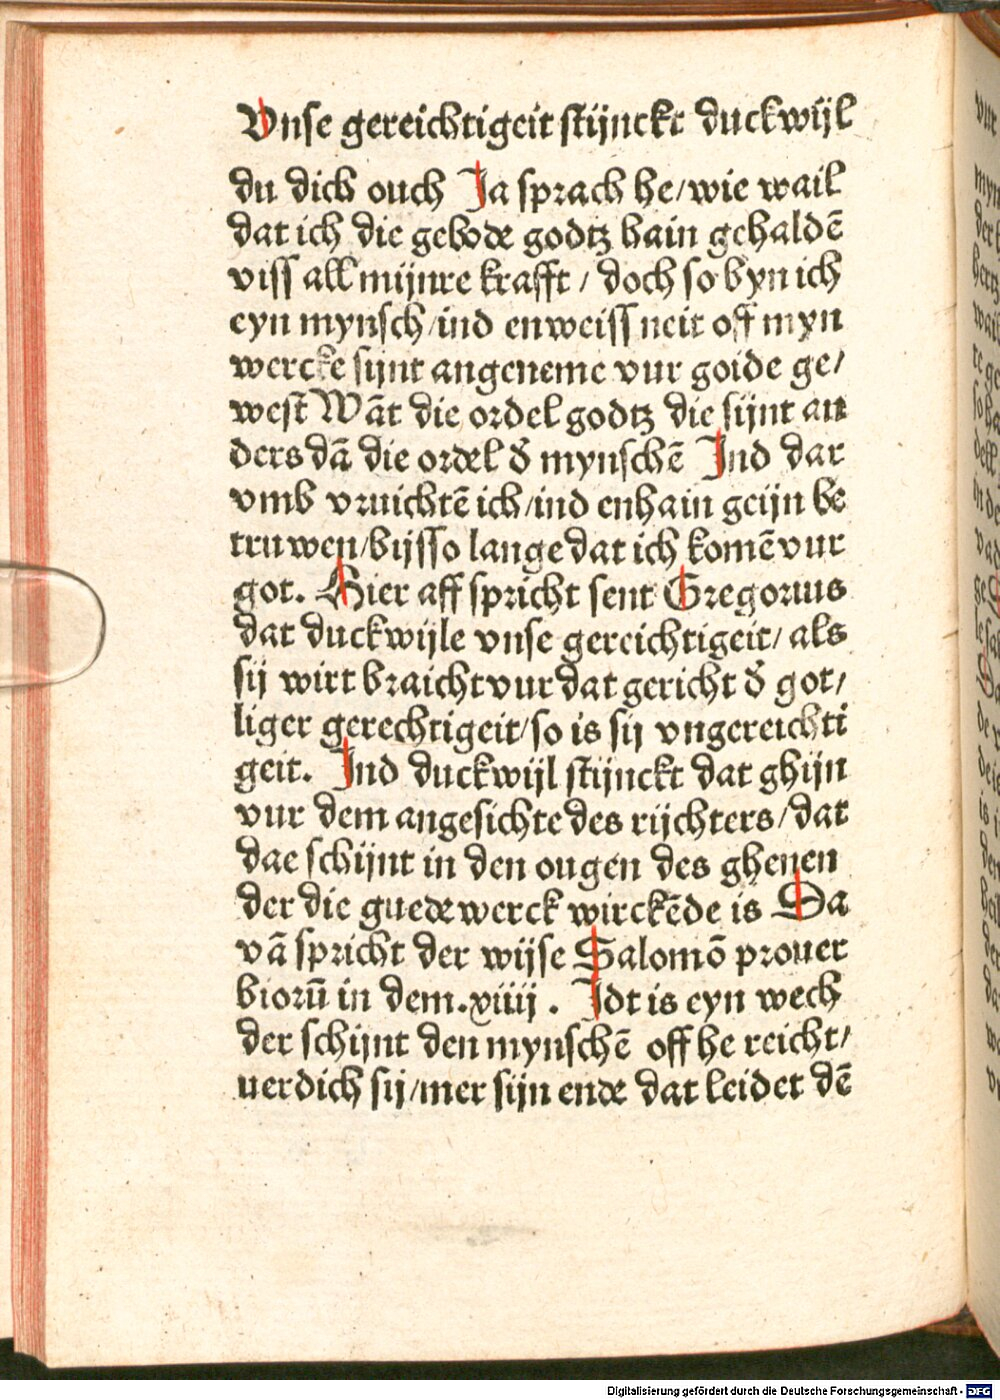 Vnse gereichtigeit stijnckt duckwijl
du dich ouch Ja sprach he/wie wail
dat ich die gebode godtz hain gehaldē
viss all mijnre krafft / doch so byn ich
eyn mynsch/ind enweiss neit off myn
wercke sijnt angeneme vur goide ge/
west Wāt die ordel godtz die sijnt an
ders dā die ordel d̄ mynschē Ind dar
vmb vruichtē ich/ind enhain geijn be
truwen/bijsso lange dat ich komē vur
got. Hier aff spricht sent Gregorius
dat duckwijle vnse gereichtigeit/ als
sij wirt braicht vur dat gericht d̄ got/
liger gerechtigeit/so is sij vngereichti
geit. Ind duckwijl stijnckt dat ghijn
vur dem angesichte des rijchters/dat
dae schijnt in den ougen des ghenen
der die guede werck wirckēde is Da
vā spricht der wijse Salomō prouer
biorū in dem.xiiij. Idt is eyn wech
der schijnt den mynschē off he reicht/
uerdich sij/mer sijn ende dat leidet dē
Digitalisierung gefördert durch die Deutsche Forschungsgemeinschaft - DFG